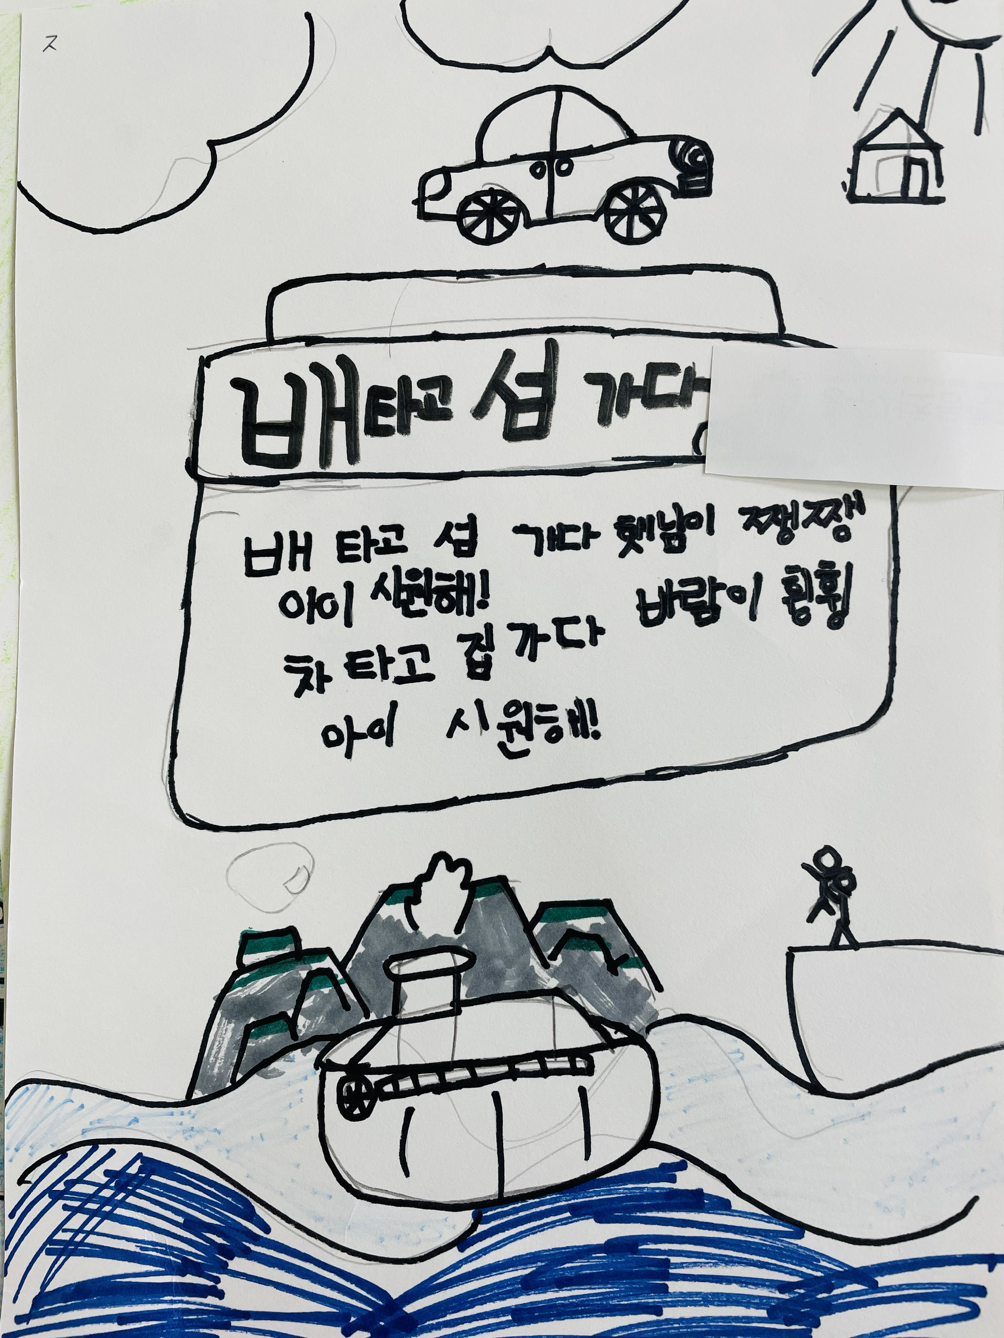 ㅈ
배타고 섬 가다
배 타고 섬 가다 햇님이 쨍쨍
아이 시원해! 바람이 휭휭
차 타고 집 가다
아이 시원해!